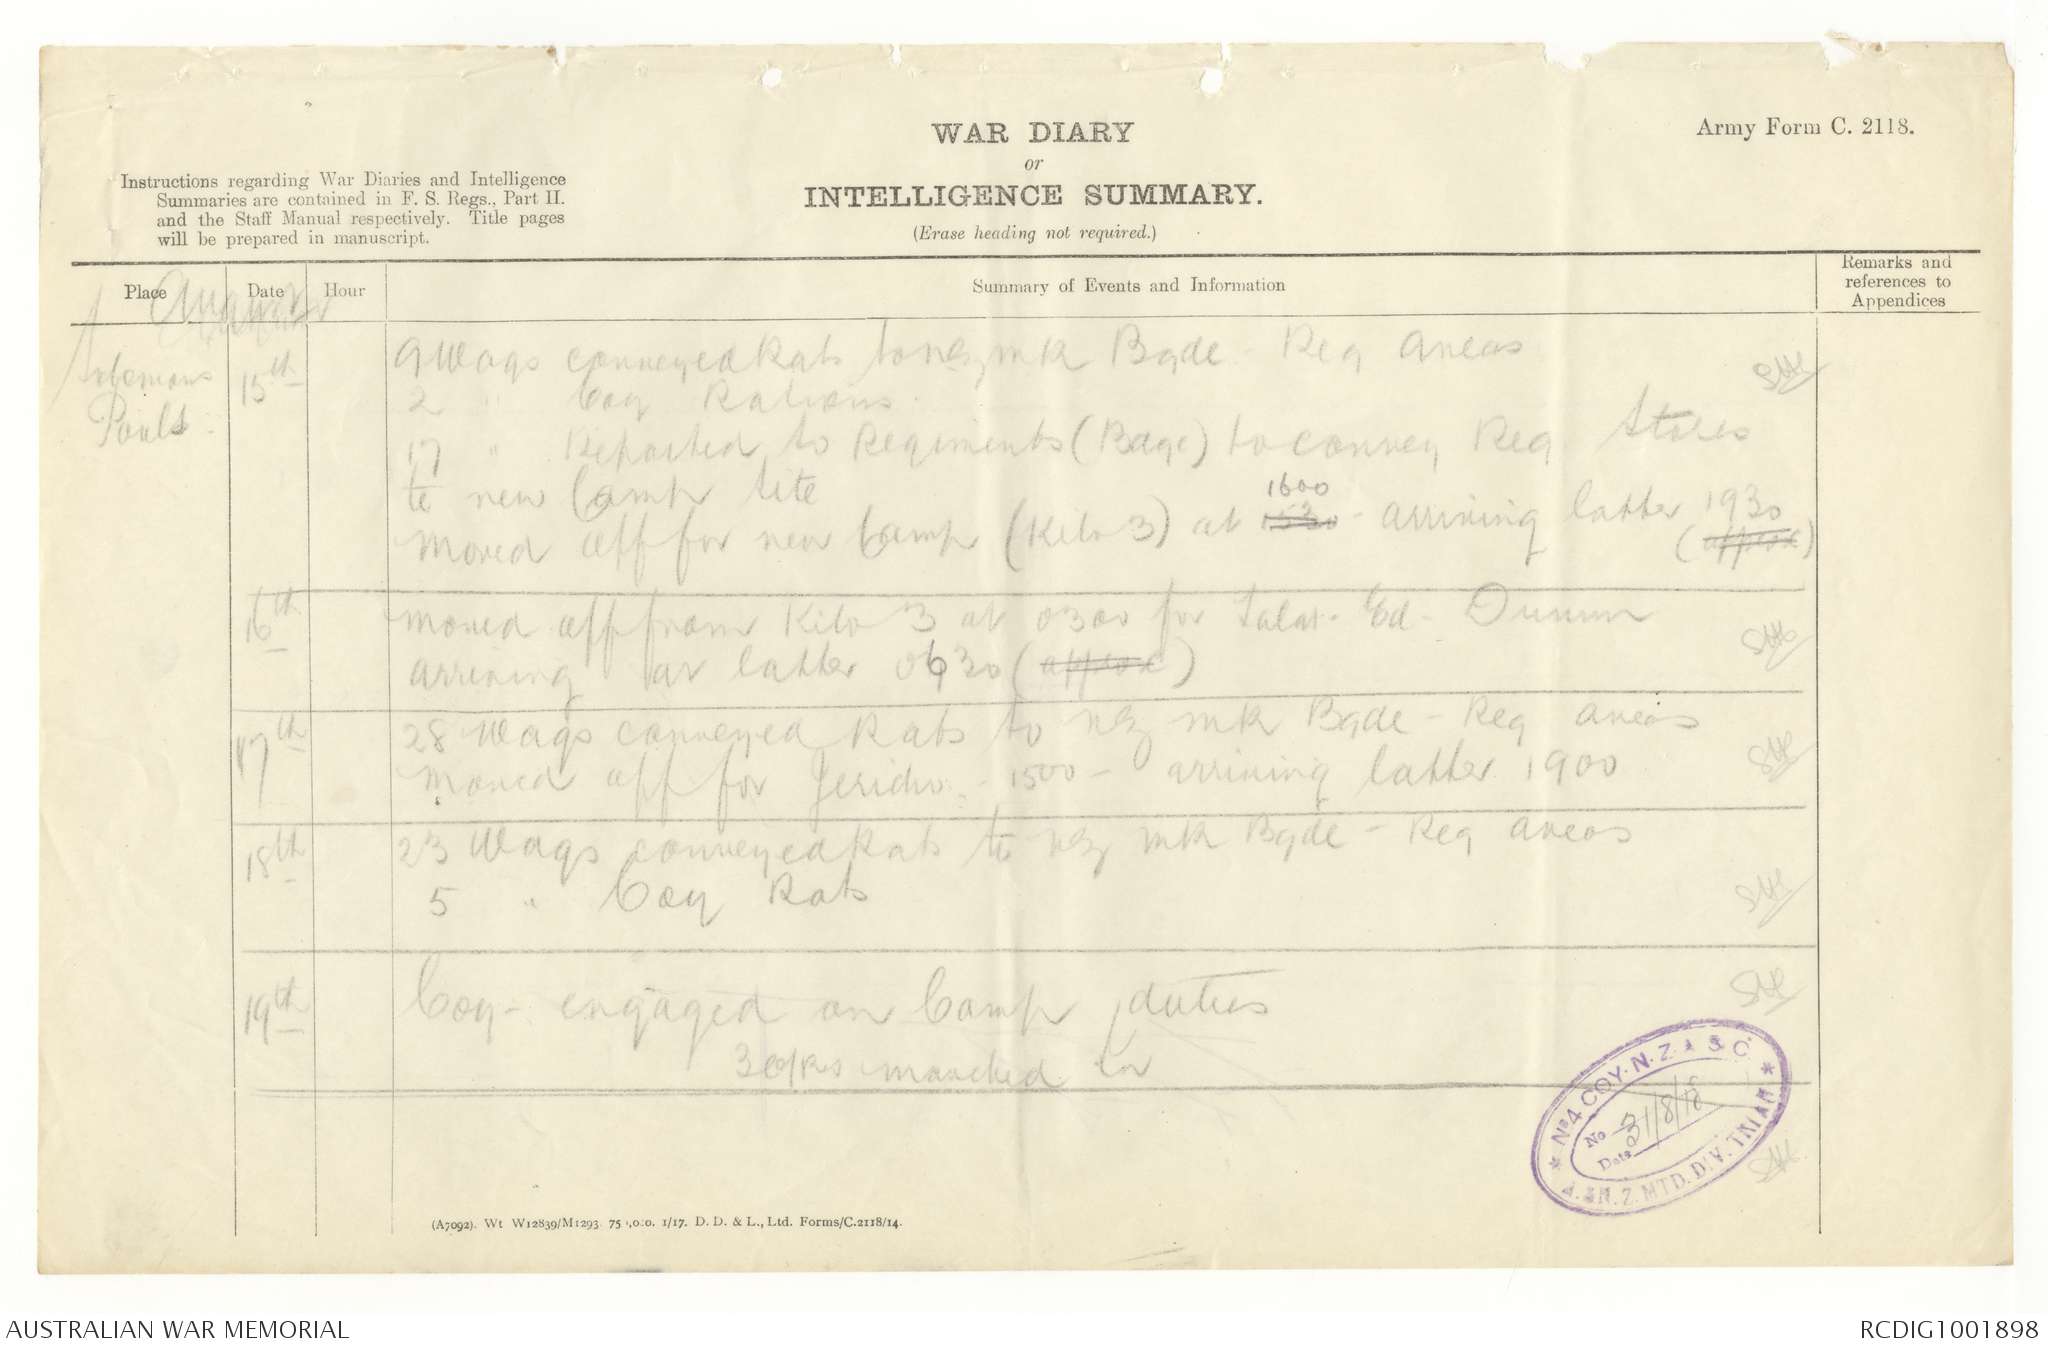 WAR DIARY
or
INTELLIGENCE SUMMARY.
(Erase heading not required.)
Army Form C. 2118.
Instructions regarding War Diaries and Intelligence
Summaries are contained in F. S. Regs., Part II.
and the Staff Manual respectively. Title pages
will be prepared in manuscript.
Place
Date
Hour
Summary of Events and Information
Remarks and
references to
Appendices
August
Solomons
Pools
15th
9 Wags conveyed Rats to NZ MR Bgde - Reg areas
2 " Coy Rations
17 " Reported to Regiments (Bdge) to convey Reg. Stores
to new Camp site
Moved off for new Camp (Kilo 3) at 1530 1600 - arriving latter 1930
(approx)
16th
Moved off from Kilo 3 at 0300 for Talat - Ed - Dumm
arriving at latter 0630 (approx)
17th
28 Wags conveyed Rats to NZ MR Bgde - Reg areas
Moved off for Jericho - 1500 - arriving latter 1900
18th
23 Wags conveyed Rats to NZ MR Bgde - Reg areas
5 " Coy Rats
19th
Coy - engaged on Camp duties
3 O/Rs marched in
No 4 COY. N.Z.A.S.C.
No
Date 31/8/18
A. & N.Z. MTD. DIV. TRAIN
(A7092). Wt W12839/M1293 75 ,0:0. 1/17. D. D. & L., Ltd. Forms/C.2118/14.
AUSTRALIAN WAR MEMORIAL
RCDIG1001898